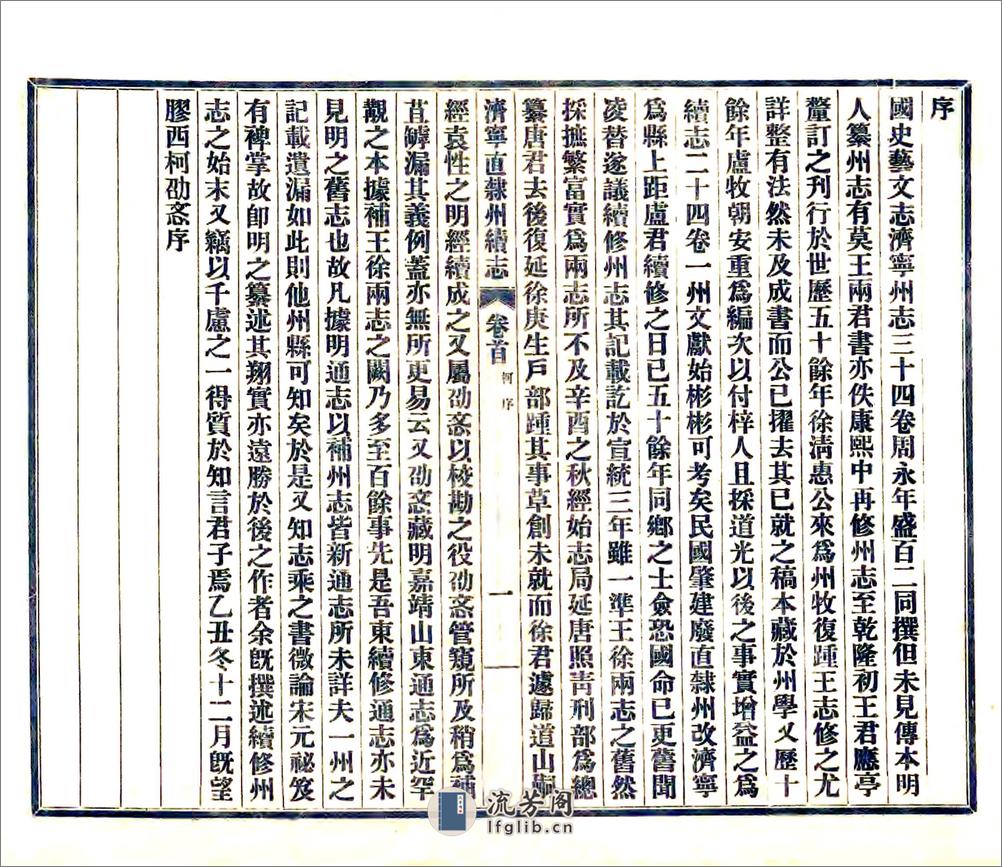 序
國史藝文志濟寧州志三十四卷周永年盛百二同撰但未見傳本明
人纂州志有莫王兩君書亦佚康熙中再修州志至乾隆初王君應亭
釐訂之刊行於世歷五十餘年徐清惠公來爲州牧復踵王志修之尤
詳整有法然未及成書而公已擢去其已就之稿本藏於州學又歷十
餘年盧牧朝安重爲編次以付梓人且採道光以後之事實增益之爲
續志二十四卷一州文獻始彬彬可考矣民國肇建廢直隸州改濟寧
爲縣上距盧君續修之日已五十餘年同鄉之士僉恐國命已更舊聞
凌替遂議續修州志其記載訖於宣統三年雖一準王徐兩志之舊然
採摭繁富實爲兩志所不及辛酉之秋經始志局延唐照青刑部爲總
纂唐君去後復延徐庚生戶部踵其事草創未就而徐君遽歸道山嗣
濟寧直隸州續志 卷首 柯序 一
經袁性之明經續成之又屬劭忞以校勘之役劭忞管窺所及稍爲補
苴罅漏其義例蓋亦無所更易云又劭忞藏明嘉靖山東通志爲近罕
觀之本據補王徐兩志之闕乃多至百餘事先是吾東續修通志亦未
見明之舊志也故凡據明通志以補州志皆新通志所未詳夫一州之
記載遺漏如此則他州縣可知矣於是又知志乘之書微論宋元祕笈
有裨掌故卽明之纂述其翔實亦遠勝於後之作者余旣撰述續修州
志之始末又竊以千慮之一得質於知言君子焉乙丑冬十二月旣望
膠西柯劭忞序
流芳阁
lfglib.cn